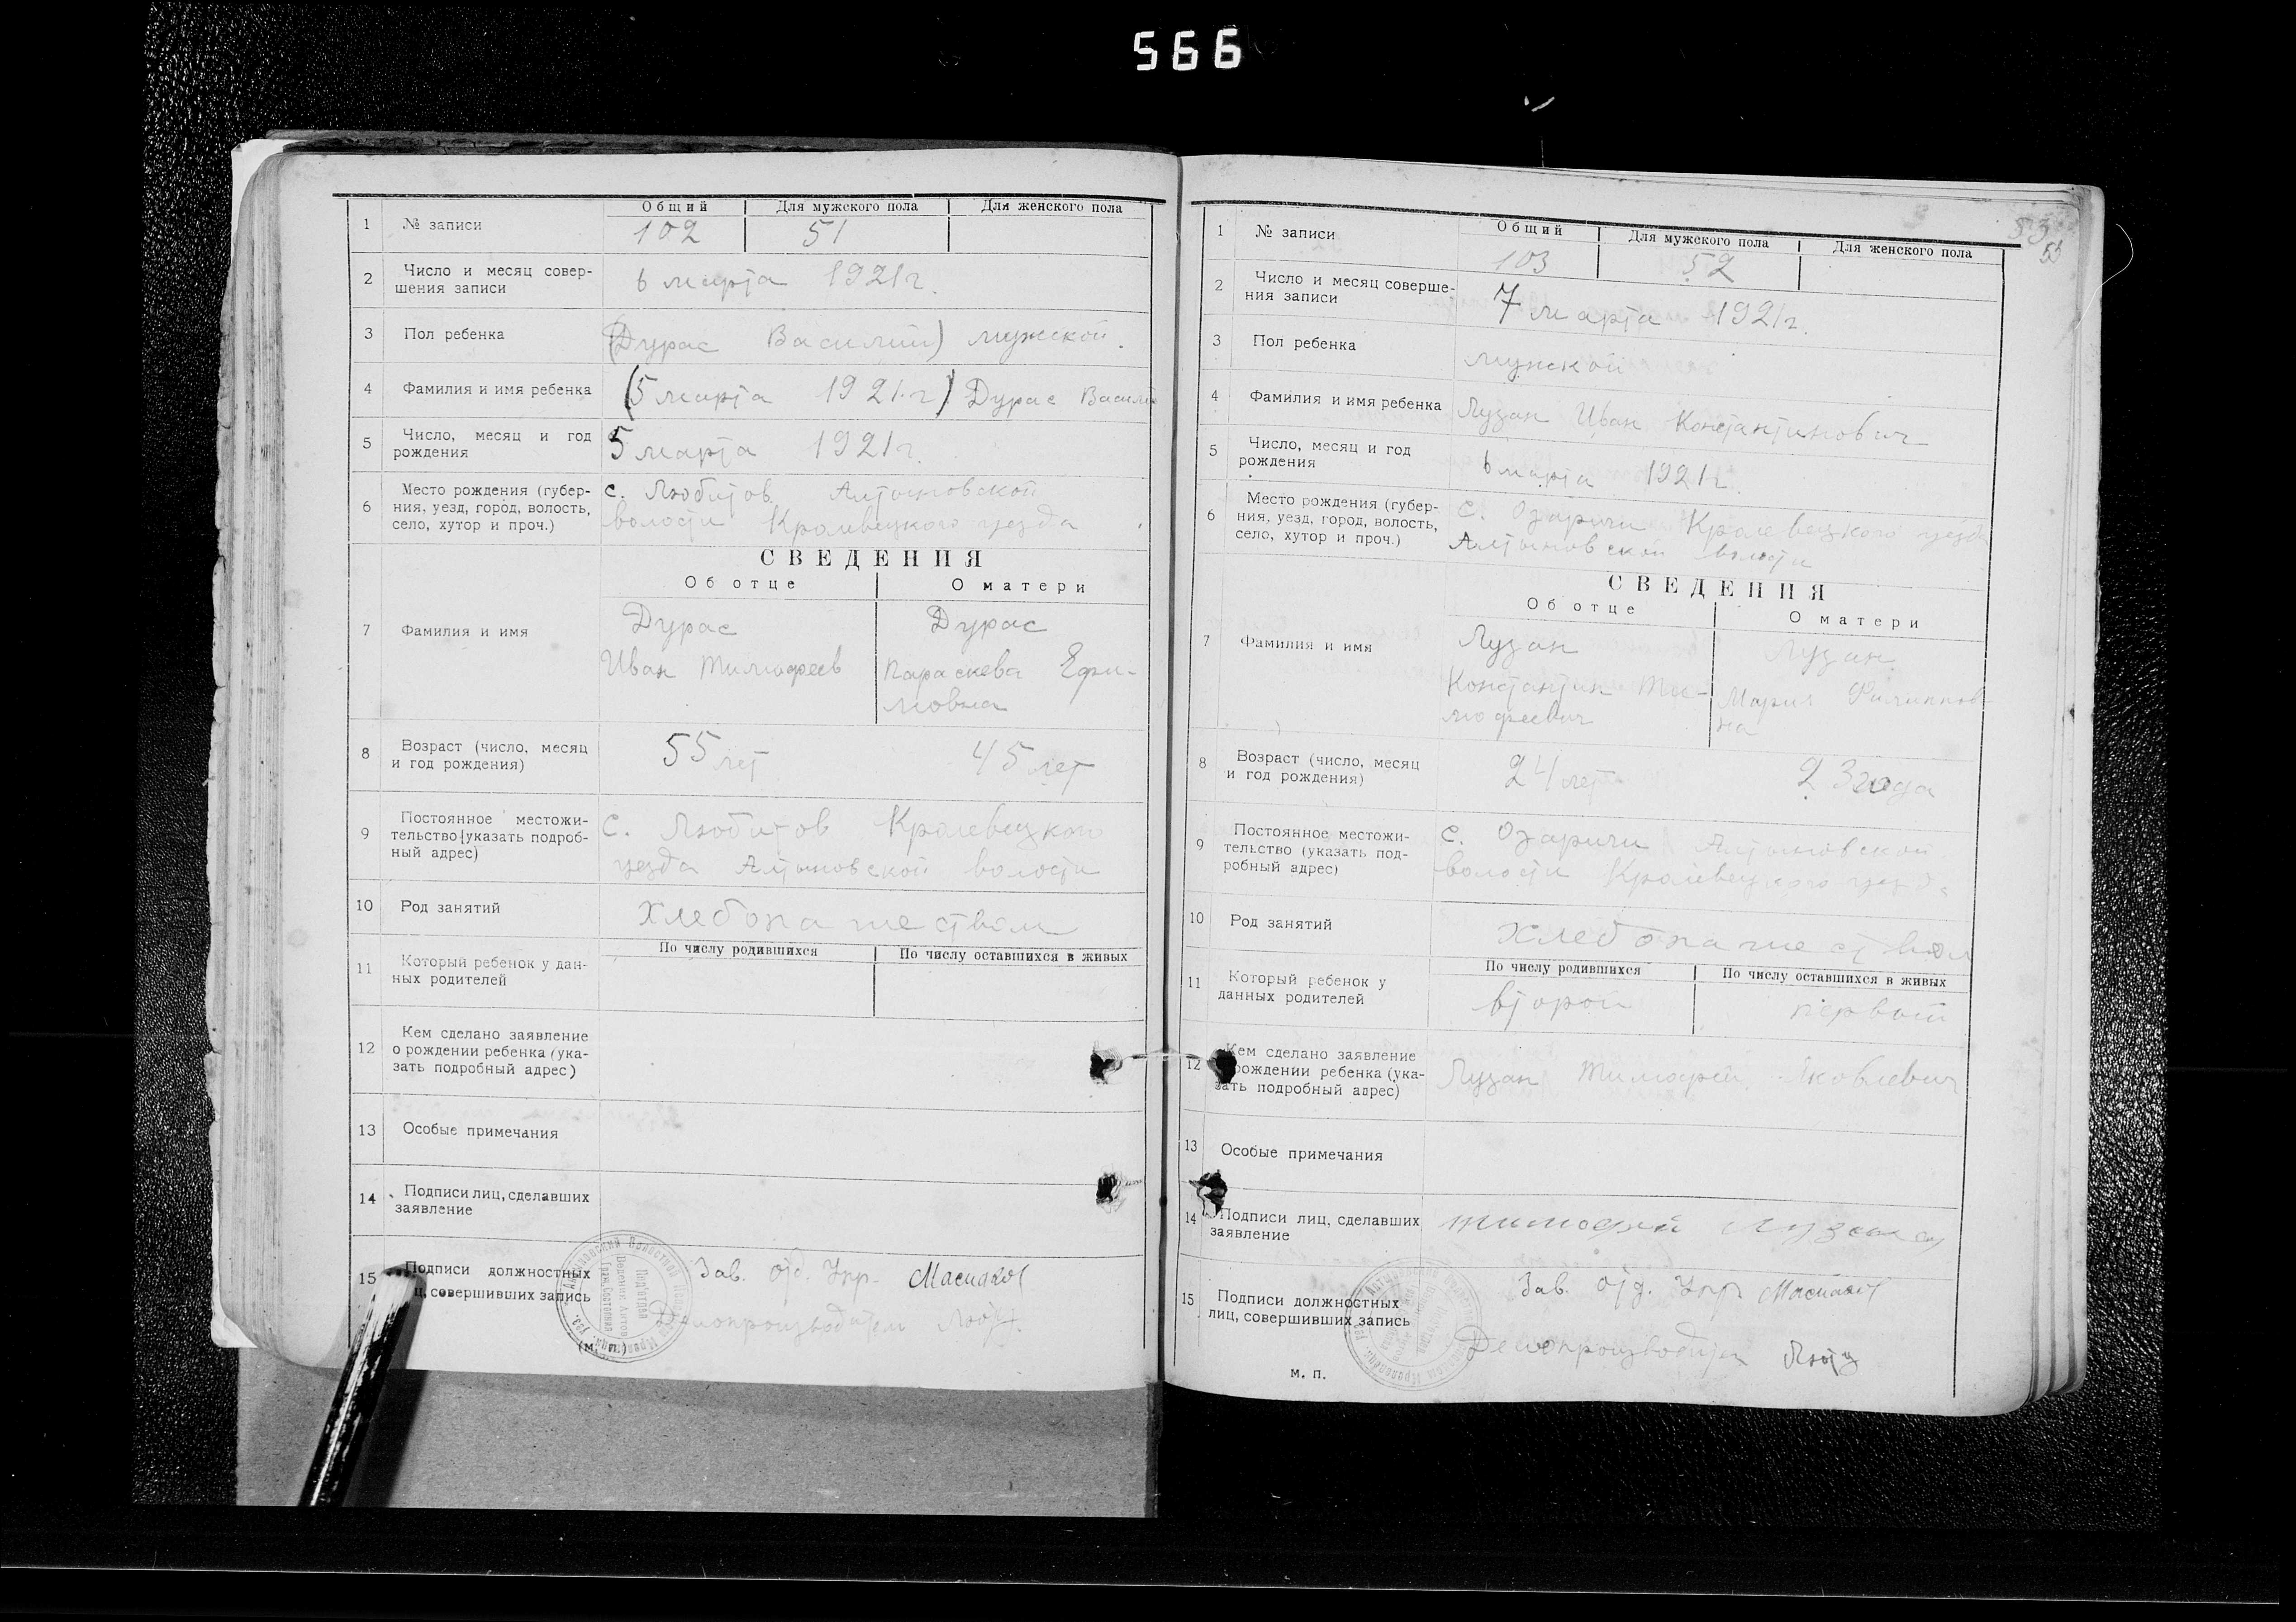 566
Общий Для мужского пола Для женского пола
1 № записи 102 51
2 Число и месяц совер-
шения записи 6 марта 1921 г.
3 Пол ребенка (Дурас Василий) мужской.
4 Фамилия и имя ребенка (5 марта 1921 г.) Дурас Василий
5 Число, месяц и год
рождения 5 марта 1921 г.
6 Место рождения (губер-
ния, уезд, город, волость,
село, хутор и проч.)
с. Любитов Алтыновской
волости Кролевецкого уезда
СВЕДЕНИЯ
Об отце О матери
7 Фамилия и имя
Дурас Дурас
Иван Тимофеев Параскева Ефи-
мовна
8 Возраст (число, месяц
и год рождения) 55 лет 45 лет
9 Постоянное местожи-
тельство (указать подроб-
ный адрес)
с. Любитов Кролевецкого
уезда Алтыновской волости
10 Род занятий хлебопашеством
По числу родившихся По числу оставшихся в живых
11 Который ребенок у дан-
ных родителей
12 Кем сделано заявление
о рождении ребенка (ука-
зать подробный адрес)
13 Особые примечания
14 Подписи лиц, сделавших
заявление
15 Подписи должностных
ц, совершивших запись
Зав. отд. Упр.
Делопроизводитель
(м. п.)
53
53
Общий Для мужского пола Для женского пола
1 № записи 103 52
2 Число и месяц соверше-
ния записи 7 марта 1921 г.
3 Пол ребенка мужской
4 Фамилия и имя ребенка Лузан Иван Константинович
5 Число, месяц и год
рождения 6 марта 1921 г.
6 Место рождения (губер-
ния, уезд, город, волость,
село, хутор и проч.)
С. Озаричи Кролевецкого уезда
Алтыновской волости
СВЕДЕНИЯ
Об отце О матери
7 Фамилия и имя
Лузан Лузан
Константин Ти- Мария Филиппов-
мофеевич на
8 Возраст (число, месяц
и год рождения) 24 лет 23 года
9 Постоянное местожи-
тельство (указать под-
робный адрес)
с. Озаричи Алтыновской
волости Кролевецкого уезда
10 Род занятий хлебопашеством
По числу родившихся По числу оставшихся в живых
11 Который ребенок у
данных родителей второй первый
12 Кем сделано заявление
рождении ребенка (ука-
зать подробный адрес) Лузан Тимофей Яковлевич
13 Особые примечания
14 Подписи лиц, сделавших
заявление Тимофей Лузан
15 Подписи должностных
лиц, совершивших запись
Зав. отд. Упр
Делопроизводитель
м. п.